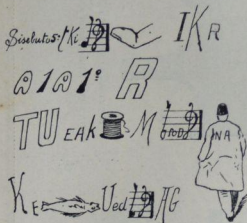 Sisebutos: Ki IKR
A1A1: R
TU EAK M TODO NA
KE Ued AG